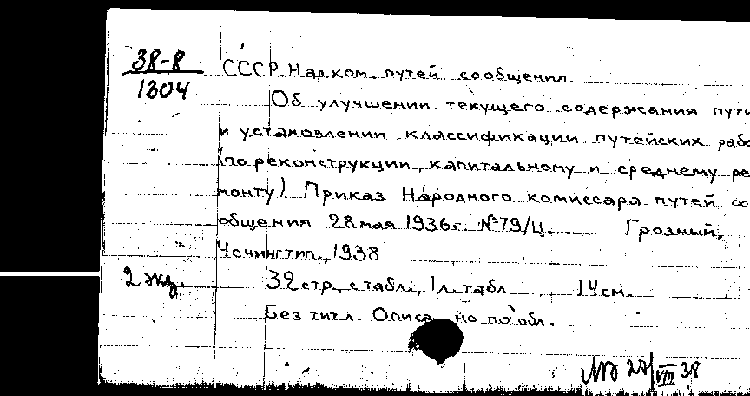 38-8
1304
СССР. Нар. ком. путей сообщения.
Об улучшении текущего содержания пути
и установлении классификации путейских рабо
(по реконструкции, капитальному и среднему ре
монту) Приказ Народного комиссара путей со
общения 28 мая 1936 г. №79/Ц. Грозный,
1938
2 экз. 32 стр. с табл., 1 л. табл. 14 см.
Без тит. л. Описано по обл.
27/VIII 38